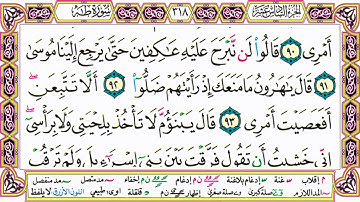 الجزء السادس عشر ٣١٨ سورة طه
أَمْرِى ٩٠ قَالُوا۟ لَن نَّبْرَحَ عَلَيْهِ عَٰكِفِينَ حَتَّىٰ يَرْجِعَ إِلَيْنَا مُوسَىٰ
٩١ قَالَ يَٰهَٰرُونُ مَا مَنَعَكَ إِذْ رَأَيْتَهُمْ ضَلُّوٓا۟ ٩٢ أَلَّا تَتَّبِعَنِ
أَفَعَصَيْتَ أَمْرِى ٩٣ قَالَ يَبْنَؤُمَّ لَا تَأْخُذْ بِلِحْيَتِى وَلَا بِرَأْسِىٓ
إِنِّى خَشِيتُ أَن تَقُولَ فَرَّقْتَ بَيْنَ بَنِىٓ إِسْرَٰٓءِيلَ وَلَمْ تَرْقُبْ